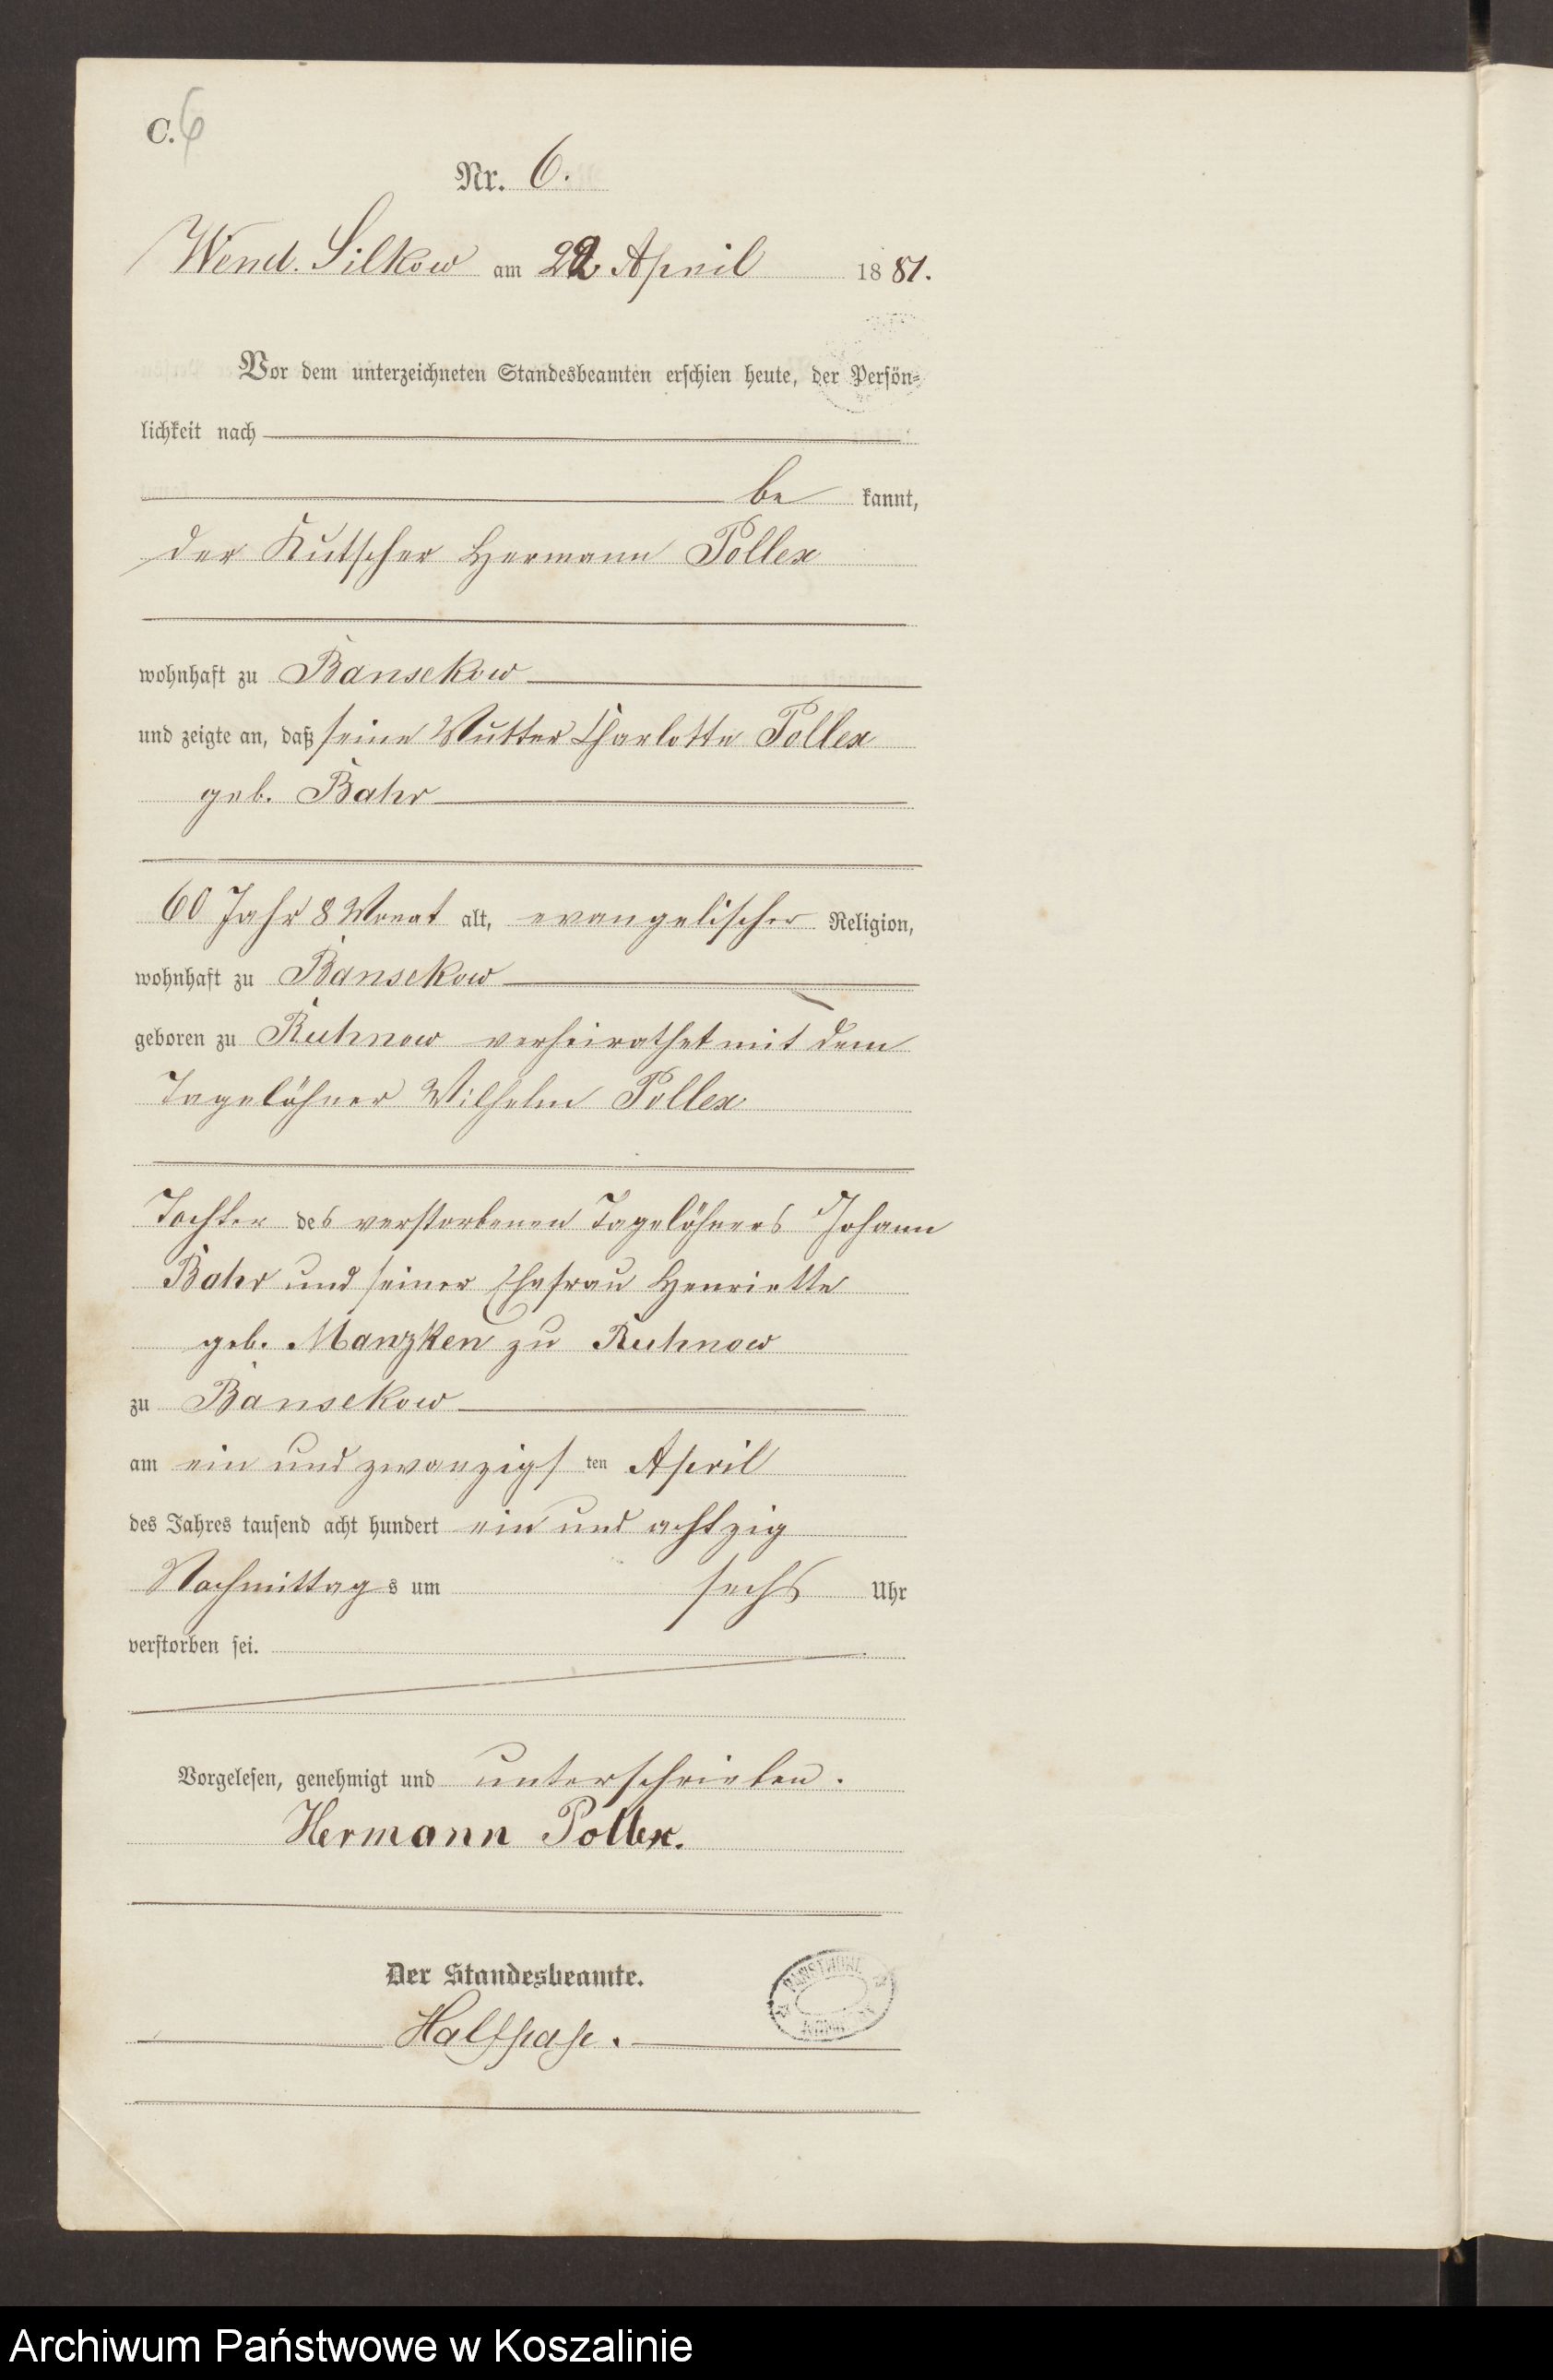 C. 6
Nr. 6.
Wend. Silkow am 22 April 1881.
Vor dem unterzeichneten Standesbeamten erschien heute, der Persön=
lichkeit nach
be kannt,
der Kutscher Hermann Pollex
wohnhaft zu Bansekow
und zeigte an, daß seine Mutter Charlotte Pollex
geb. Bahr
60 Jahr 8 Monat alt, evangelischer Religion,
wohnhaft zu Bansekow
geboren zu Ruhnow verheirathet mit dem
Tagelöhner Wilhelm Pollex
Tochter des verstorbenen Tagelöhners Johann
Bahr und seiner Ehefrau Henriette
geb. Manzken zu Ruhnow
zu Bansekow
am ein und zwanzigsten April
des Jahres tausend acht hundert ein und achtzig
Nachmittags um sechs Uhr
verstorben sei.
Vorgelesen, genehmigt und unterschrieben.
Hermann Pollex.
Der Standesbeamte.
Halfpap.
Archiwum Państwowe w Koszalinie